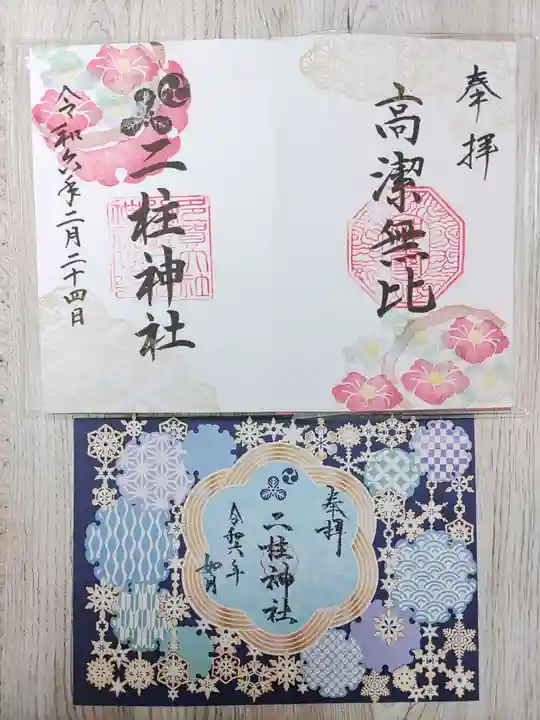 奉拝
高潔無比
二柱神社
令和六年二月二十四日
奉拝
二柱神社
令和六年
如月